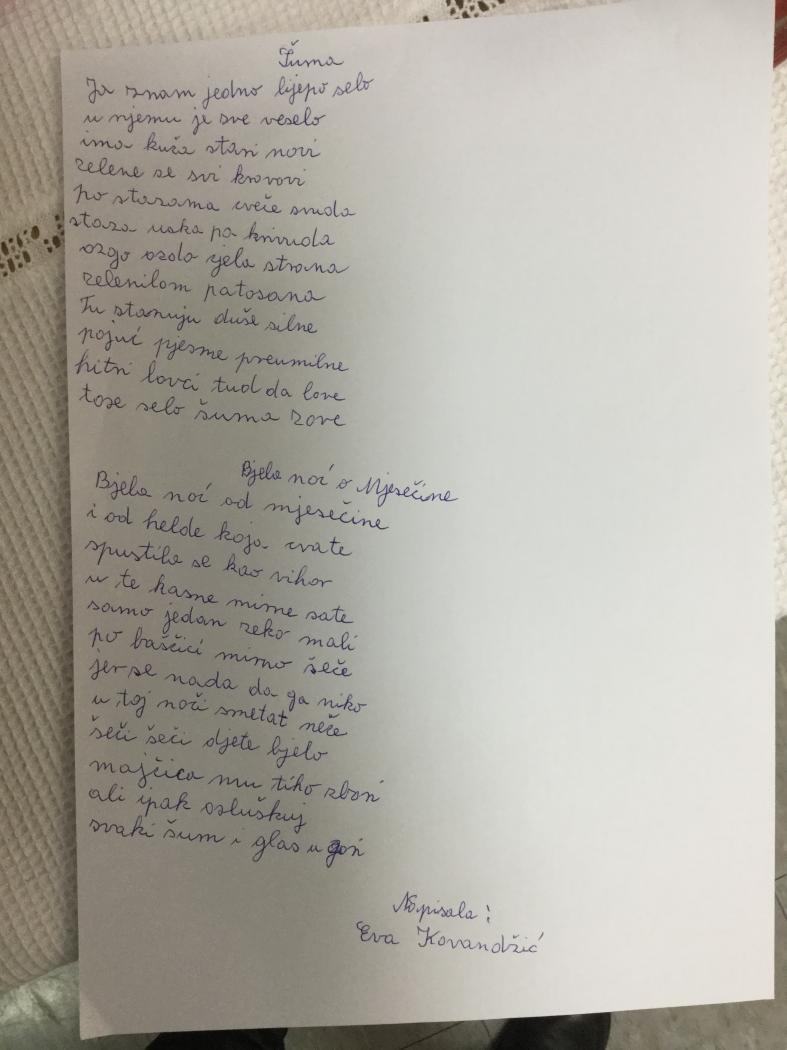 Šuma
Ja znam jedno lijepo selo
u njemu je sve veselo
ima kuča stari novi
zelene se svi krovovi
po stazama cveče svuda
staza uska pa krivuda
ozgo ozdo cjela strana
zelenilom patosana
Tu stanuju duše silne
pojuć pjesme preumilne
hitri lovci tud da love
tose selo šuma zove
Bjela noć o Mjesečine
Bjela noć od mjesečine
i od helde koja cvate
spustila se kao vihor
u te kasne mirne sate
samo jedan zeko mali
po baščici mirno šeče
jer se nada da ga niko
u toj noči smetat neče
šeči šeči djete bjelo
majčica mu tiho zbori
ali ipak osluškuj
svaki šum i glas u gori
Napisala:
Eva Kovandžić